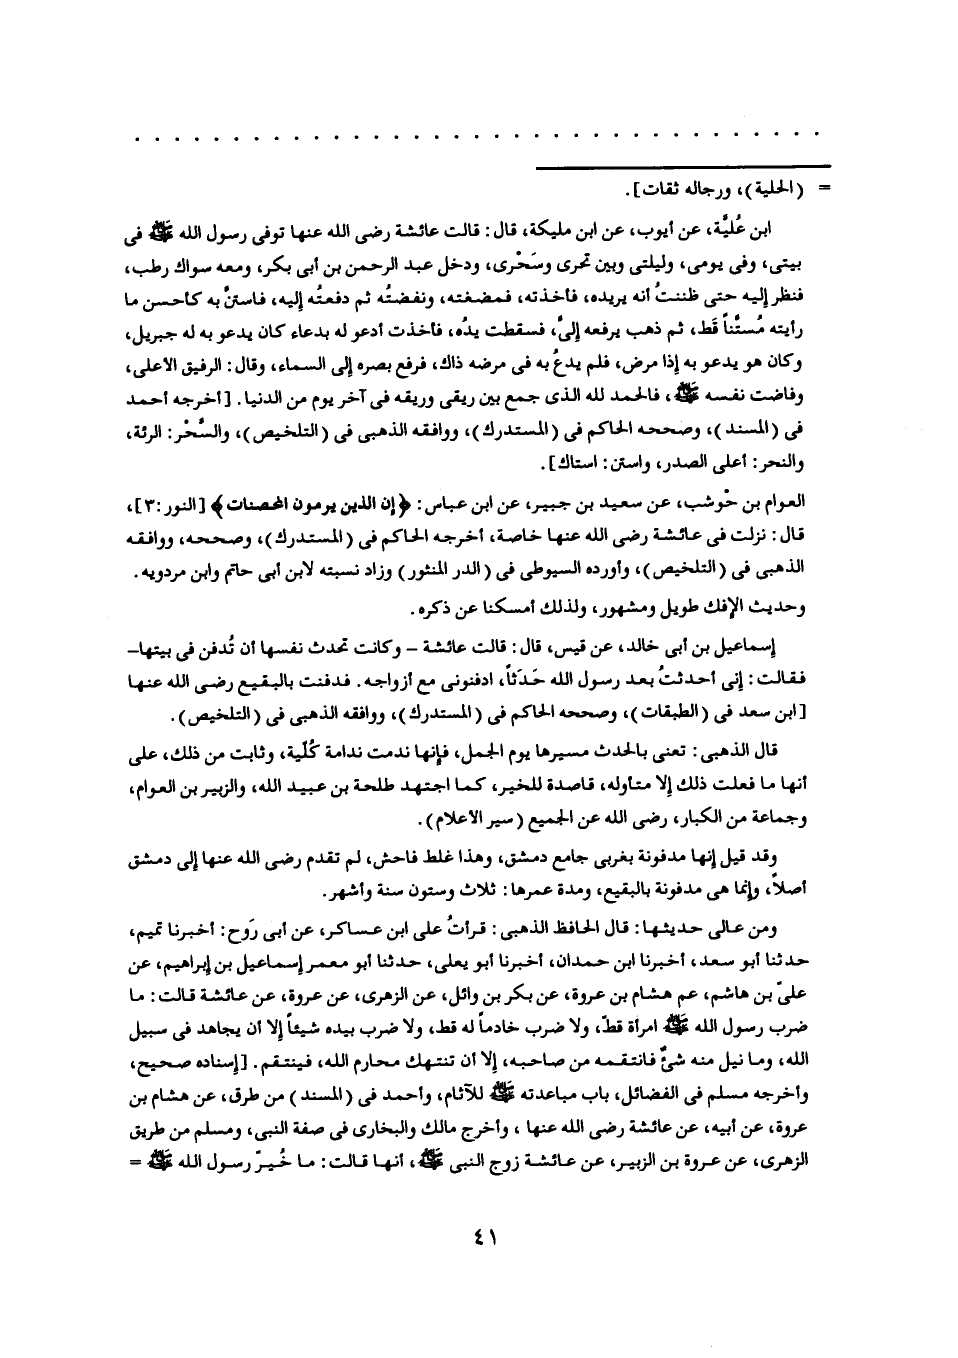 = (الحلية)، ورجاله ثقات].
ابن عُليَّة، عن أيوب، عن ابن مليكة، قال: قالت عائشة رضى الله عنها توفى رسول الله ﷺ فى
بيتى، وفى يومى، وليلتى وبين تحرى وسَحْرى، ودخل عبد الرحمن بن أبى بكر، ومعه سواك رطب،
فنظر إليه حتى ظننتُ أنه يريده، فأخذته، فمضغته، ونفضتُه ثم دفعتُه إليه، فاستنَّ به كأحسن ما
رأيته مُستَّناً قَط، ثم ذهب يرفعه إلىَّ، فسقطت يدُه، فأخذت أدعو له بدعاء كان يدعو به له جبريل،
وكان هو يدعو به إذا مرض، فلم يدعُ به فى مرضه ذاك، فرفع بصره إلى السماء، وقال: الرفيق الأعلى،
وفاضت نفسه ﷺ، فالحمد لله الذى جمع بين ريقى وريقه فى آخر يوم من الدنيا. [أخرجه أحمد
فى (المسند)، وصححه الحاكم فى (المستدرك)، ووافقه الذهبى فى (التلخيص)، والسَّحْر: الرئة،
والنحر: أعلى الصدر، واستن: استاك].
العوام بن حْوشب، عن سعيد بن جبير، عن ابن عباس: ﴿إن الذين يرمون المحصنات﴾ [النور:٣]،
قال: نزلت فى عائشة رضى الله عنها خاصة، أخرجه الحاكم فى (المستدرك)، وصححه، ووافقه
الذهبى فى (التلخيص)، وأورده السيوطى فى (الدر المنثور) وزاد نسبته لابن أبى حاتم وابن مردويه.
وحديث الإفك طويل ومشهور، ولذلك أمسكنا عن ذكره.
إسماعيل بن أبى خالد، عن قيس، قال: قالت عائشة – وكانت تحدث نفسها أن تُدفن فى بيتها–
فقالت: إنى أحدثتُ بعد رسول الله حَدَثاً، ادفنونى مع أزواجه. فدفنت بالبقيع رضى الله عنها
[ابن سعد فى (الطبقات)، وصححه الحاكم فى (المستدرك)، ووافقه الذهبى فى (التلخيص).
قال الذهبى: تعنى بالحدث مسيرها يوم الجمل، فإنها ندمت ندامة كُلّية، وثابت من ذلك، على
أنها ما فعلت ذلك إلا متأوله، قاصدة للخير، كما اجتهد طلحة بن عبيد الله، والزبير بن العوام،
وجماعة من الكبار، رضى الله عن الجميع (سير الأعلام).
وقد قيل إنها مدفونة بغربى جامع دمشق، وهذا غلط فاحش، لم تقدم رضى الله عنها إلى دمشق
أصلاً، وإنما هى مدفونة بالبقيع، ومدة عمرها: ثلاث وستون سنة وأشهر.
ومن عالى حديثها: قال الحافظ الذهبى: قرأتُ على ابن عساكر، عن أبى رَوح: أخبرنا تميم،
حدثنا أبو سعد، أخبرنا ابن حمدان، أخبرنا أبو يعلى، حدثنا أبو معمر إسماعيل بن إبراهيم، عن
علىّ بن هاشم، عم هشام بن عروة، عن بكر بن وائل، عن الزهرى، عن عروة، عن عائشة قالت: ما
ضرب رسول الله ﷺ امرأة قطّ، ولا ضرب خادماً له قط، ولا ضرب بيده شيئاً إلا أن يجاهد فى سبيل
الله، وما نيل منه شىٌ فانتقمه من صاحبه، إلا أن تنتهك محارم الله، فينتقم. [إسناده صحيح،
وأخرجه مسلم فى الفضائل، باب مباعدته ﷺ للآثام، وأحمد فى (المسند) من طرق، عن هشام بن
عروة، عن أبيه، عن عائشة رضى الله عنها ، وأخرج مالك والبخارى فى صفة النبى، ومسلم من طريق
الزهرى، عن عروة بن الزبير، عن عائشة زوج النبى ﷺ، أنها قالت: ما خُيرّ رسول الله ﷺ =
٤١